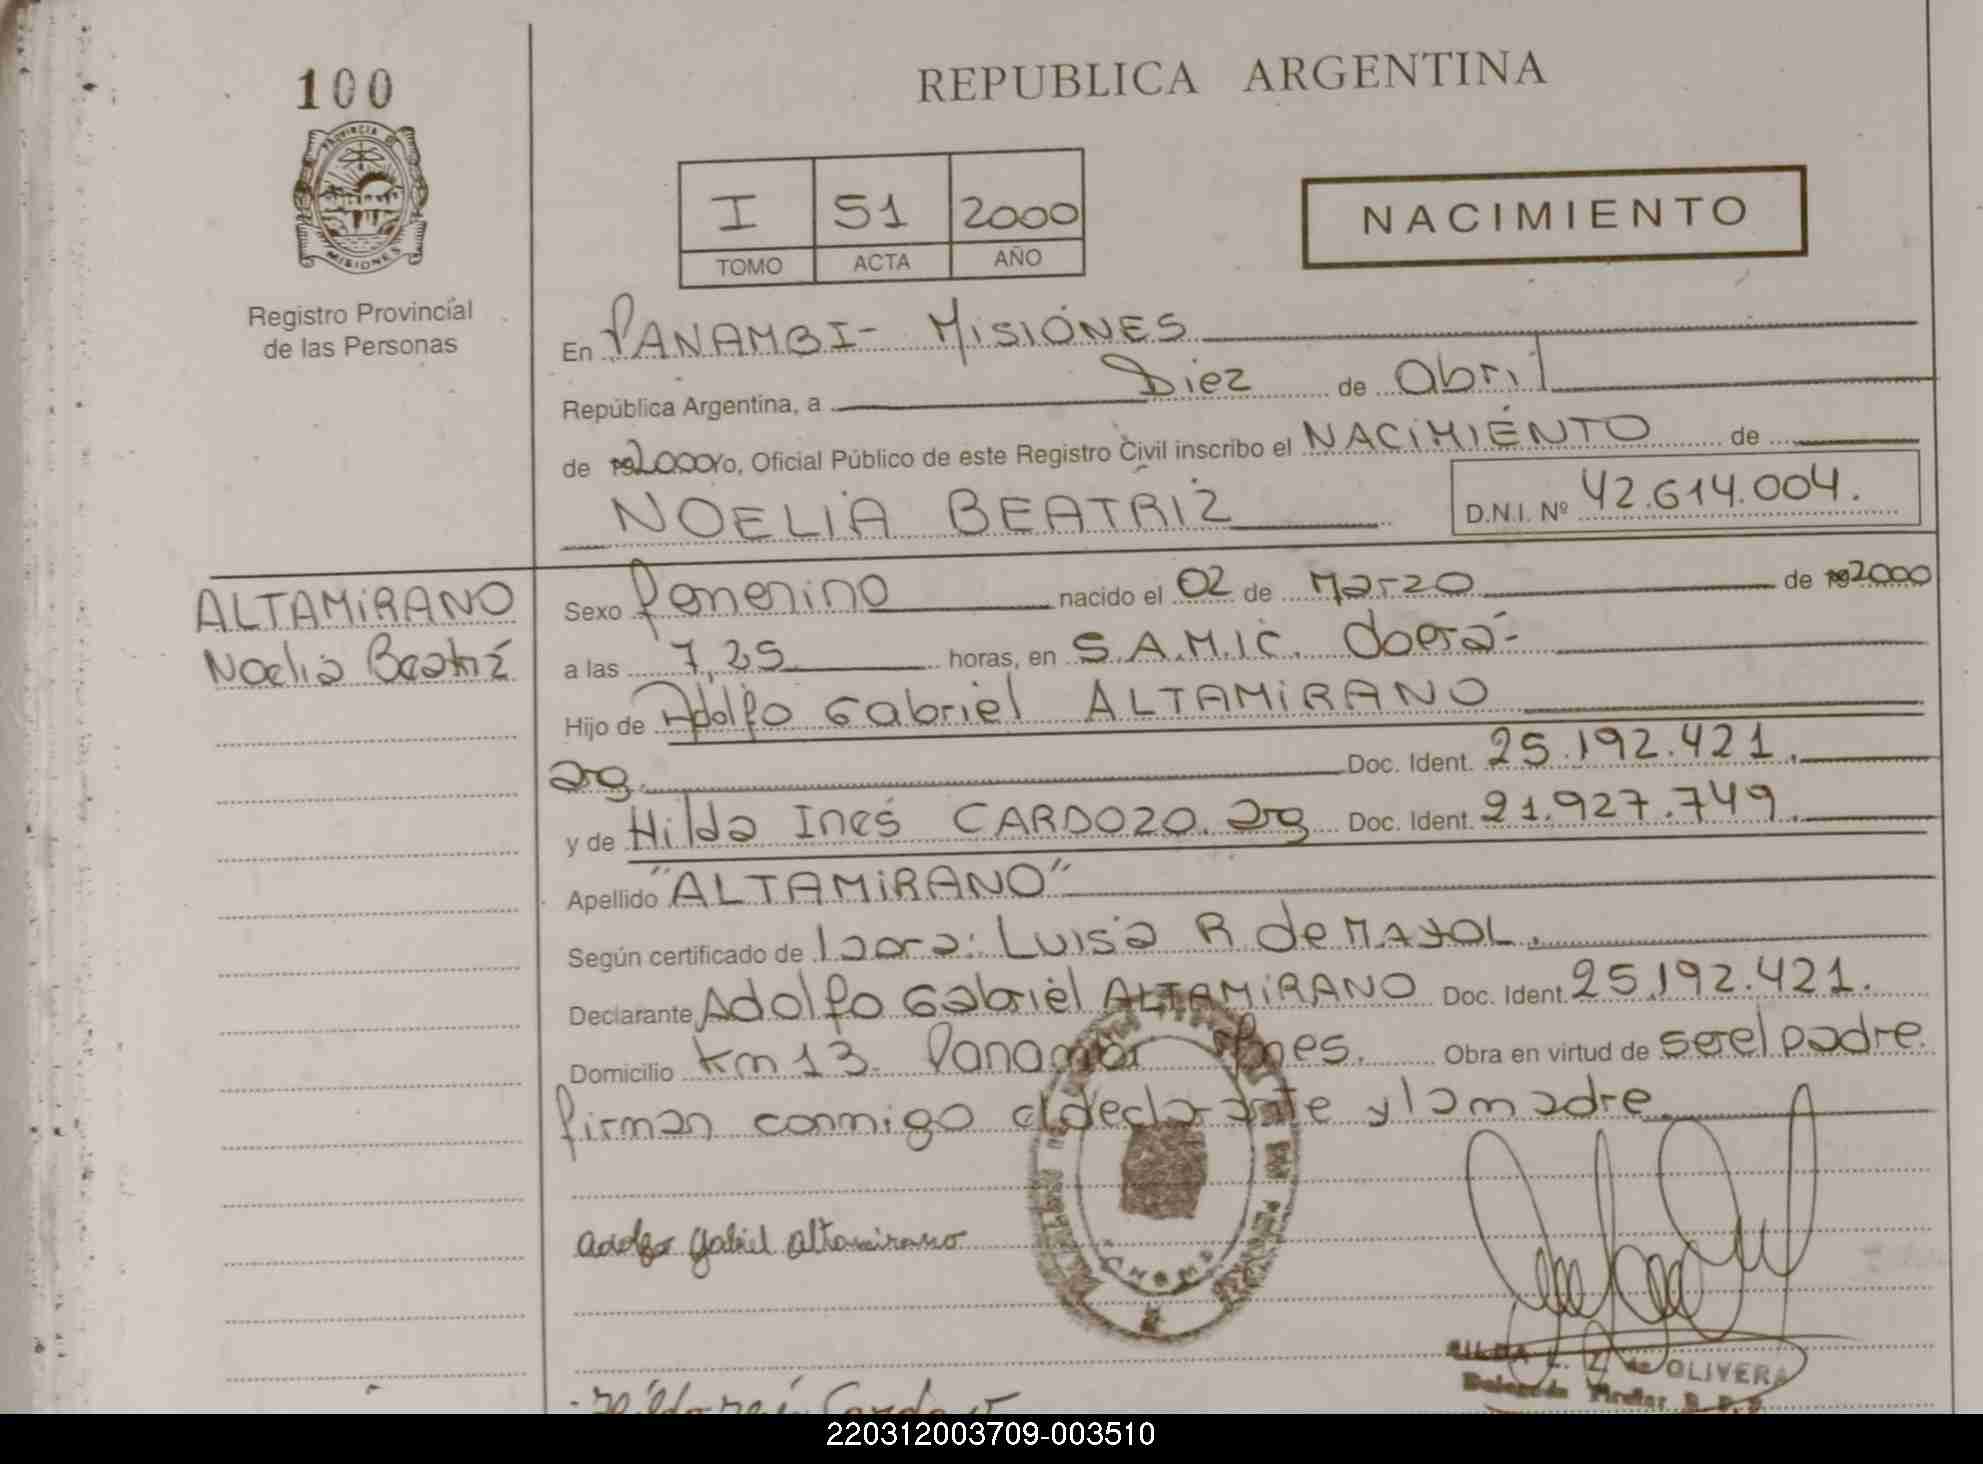 100
PROVINCIA DE
MISIONES
Registro Provincial
de las Personas
REPUBLICA ARGENTINA
I 51 2000
TOMO ACTA AÑO
NACIMIENTO
En PANAMBI- MISIONES
República Argentina, a Diez de abril
de 2000, Oficial Público de este Registro Civil inscribo el NACIMIENTO de
NOELIA BEATRIZ D.N.I. Nº 42.614.004.
ALTAMIRANO
Noelia Beatriz
Sexo femenino nacido el 02 de Marzo de 2000
a las 7,25 horas, en S.A.M.I.C. Oberá-
Hijo de Adolfo Gabriel ALTAMIRANO
arg. Doc. Ident. 25.192.421.
y de Hilda Inés CARDOZO. arg Doc. Ident. 21.927.749.
Apellido "ALTAMIRANO"
Según certificado de Luisa R de MAYOL.
Declarante Adolfo Gabriel ALTAMIRANO Doc. Ident. 25.192.421.
Domicilio Km 13. Panambi Mnes. Obra en virtud de ser el padre.
firman conmigo el declarante y la madre
adolfo gabriel altamirano
L. Z. de OLIVERA
Delegada Titular R. P. P.
220312003709-003510